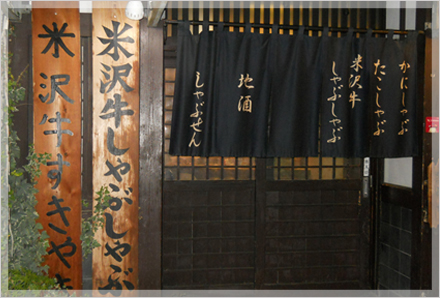 かにしゃぶ
たこしゃぶ
米沢牛
しゃぶしゃぶ
地酒
しゃぶせん
米沢牛しゃぶしゃぶ
米沢牛すきやき